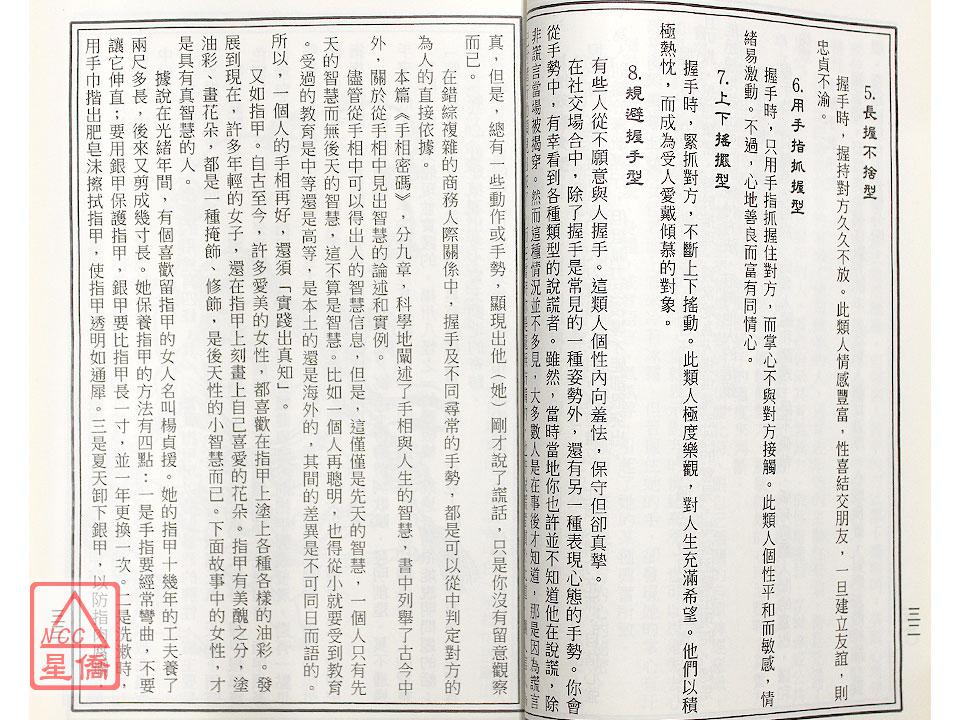 5.長握不捨型
握手時，握持對方久久不放。此類人情感豐富，性喜結交朋友，一旦建立友誼，則
忠貞不渝。
6.用手指抓握型
握手時，只用手指抓握住對方，而掌心不與對方接觸。此類人個性平和而敏感，情
緒易激動。不過，心地善良而富有同情心。
7.上下搖擺型
握手時，緊抓對方，不斷上下搖動。此類人極度樂觀，對人生充滿希望。他們以積
極熱忱，而成為受人愛戴傾慕的對象。
8.規避握手型
有些人從不願意與人握手。這類人個性內向羞怯，保守但卻真摯。
在社交場合中，除了握手是常見的一種姿勢外，還有另一種表現心態的手勢。你會
從手勢中，有幸看到各種類型的說謊者。雖然，當時當地你也許並不知道他在說謊，除
非謊言當場被揭穿。然而這種情況並不多見，大多數人是在事後才知道，那是因為謊言
三二
真，但是，總有一些動作或手勢，顯現出他（她）剛才說了謊話，只是你沒有留意觀察
而已。
在錯綜複雜的商務人際關係中，握手及不同尋常的手勢，都是可以從中判定對方的
為人的直接依據。
本篇《手相密碼》，分九章，科學地闡述了手相與人生的智慧，書中列舉了古今中
外，關於從手相中見出智慧的論述和實例。
儘管從手相中可以得出人的智慧信息，但是，這僅僅是先天的智慧，一個人只有先
天的智慧而無後天的智慧，這不算是智慧。比如一個人再聰明，也得從小就要受到教育
。受過的教育是中等還是高等，是本土的還是海外的，其間的差異是不可同日而語的。
所以，一個人的手相再好，還須「實踐出真知」。
又如指甲。自古至今，許多愛美的女性，都喜歡在指甲上塗上各種各樣的油彩。發
展到現在，許多年輕的女子，還在指甲上刻畫上自己喜愛的花朵。指甲有美醜之分，塗
油彩、畫花朵，都是一種掩飾、修飾，是後天性的小智慧而已。下面故事中的女性，才
是具有真智慧的人。
據說在光緒年間，有個喜歡留指甲的女人名叫楊貞援。她的指甲十幾年的工夫養了
兩尺多長，後來又剪成幾寸長。她保養指甲的方法有四點：一是手指要經常彎曲，不要
讓它伸直；要用銀甲保護指甲，銀甲要比指甲長一寸，並一年更換一次。二是洗漱時，
用手巾揩出肥皂沫擦拭指甲，使指甲透明如通犀。三是夏天卸下銀甲，以防指
三
NCC
星僑